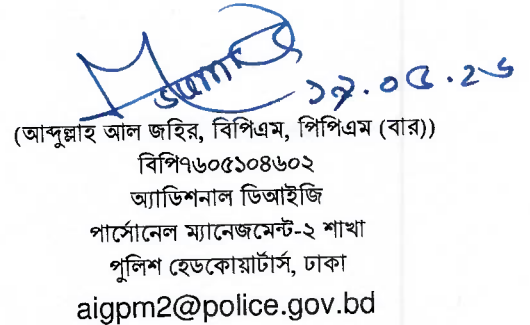 (আব্দুল্লাহ আল জহির, বিপিএম, পিপিএম (বার))
বিপি৭৬০৫১০৪৬০২
অ্যাডিশনাল ডিআইজি
পার্সোনেল ম্যানেজমেন্ট-২ শাখা
পুলিশ হেডকোয়ার্টার্স, ঢাকা
aigpm2@police.gov.bd